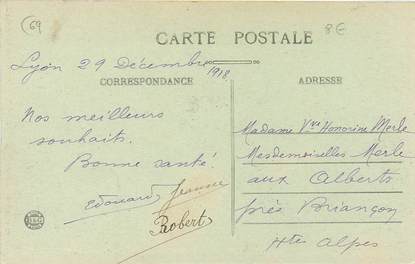 69
8€
CARTE POSTALE
Lyon 29 Décembre 1918
CORRESPONDANCE
Nos meilleurs
souhaits.
Bonne santé!
Edouard Jeanne
Robert
ADRESSE
Madame Vve Honorine Merle
Mesdemoiselles Merle
aux Alberts
près Briançon
Htes Alpes